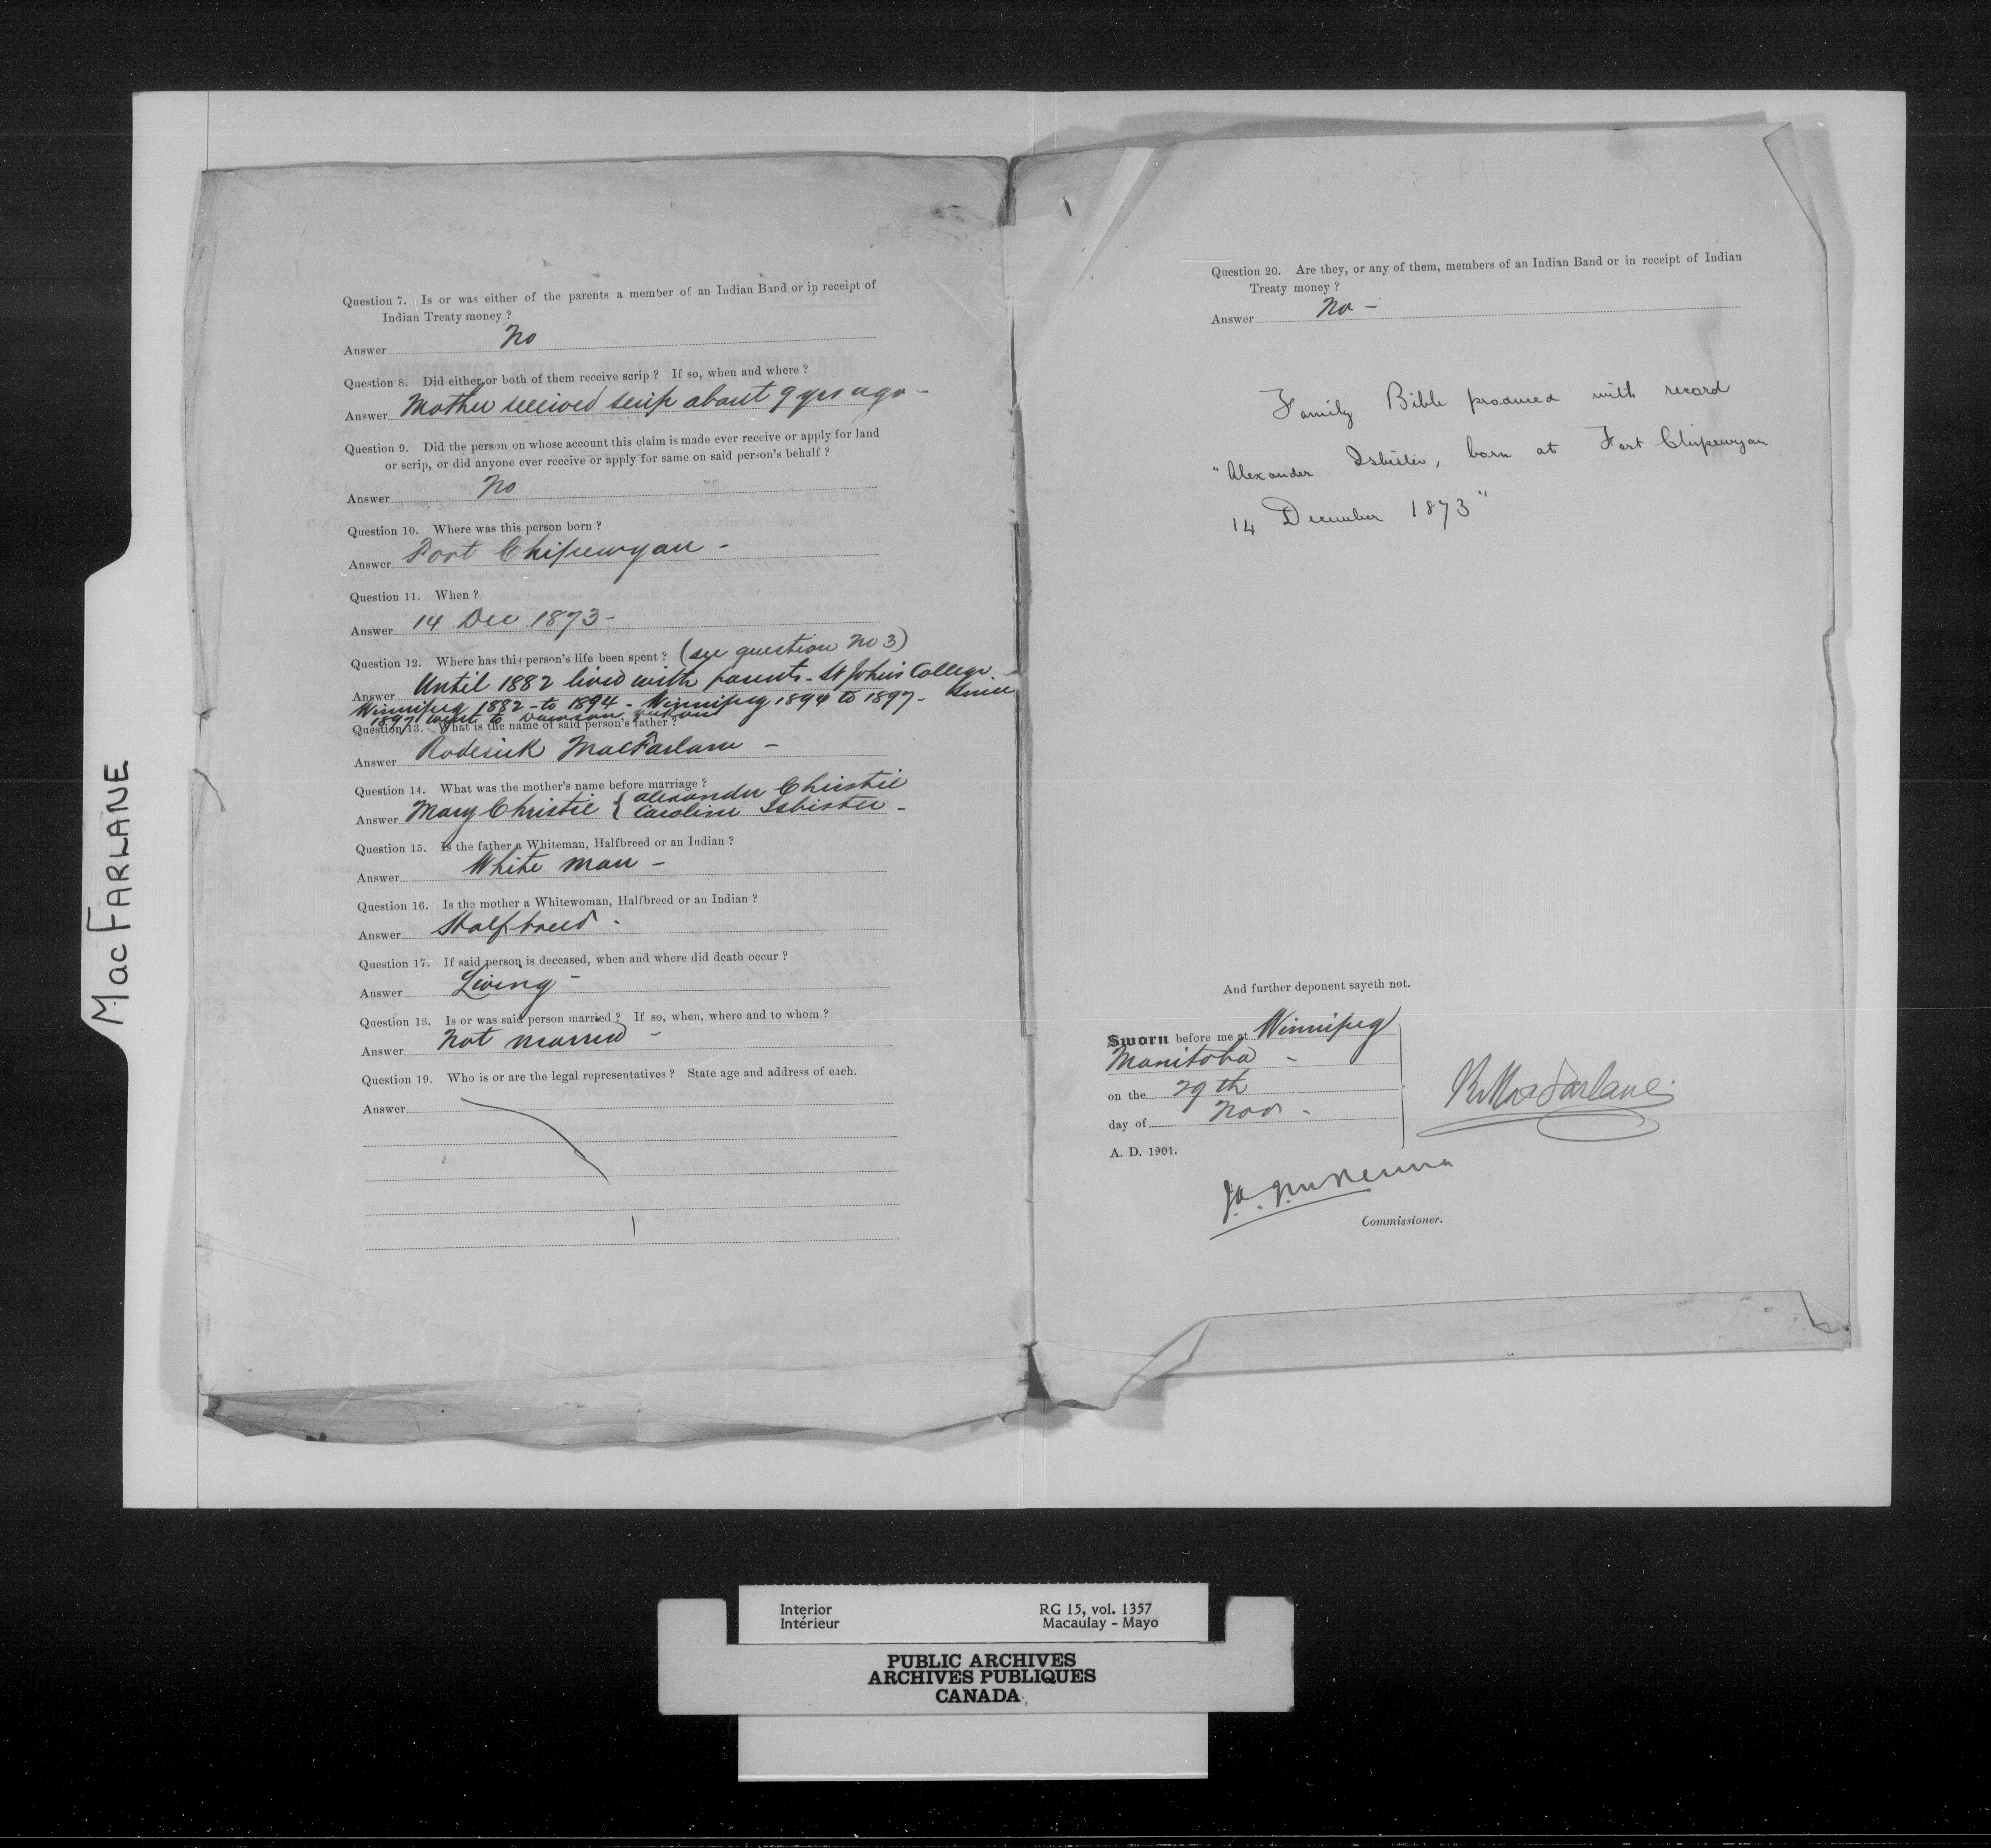 MacFARLANE
Question 7. Is or was either of the parents a member of an Indian Band or in receipt of
Indian Treaty money ?
Answer No
Question 8. Did either or both of them receive scrip ? If so, when and where ?
Answer Mother received scrip about 9 yrs ago -
Question 9. Did the person on whose account this claim is made ever receive or apply for land
or scrip, or did anyone ever receive or apply for same on said person's behalf ?
Answer No
Question 10. Where was this person born ?
Answer Fort Chipewyan -
Question 11. When ?
Answer 14 Dec 1873 -
Question 12. Where has this person's life been spent ? (see question No 3)
Answer Until 1882 lived with parents - St John's College.
Winnipeg 1882 - to 1894 - Winnipeg 1894 to 1897 - Since
1897 went to Dawson Yukon
Question 13. What is the name of said person's father ?
Answer Roderick MacFarlane -
Question 14. What was the mother's name before marriage ?
Answer Mary Christie { Alexander Christie
Caroline Isbister -
Question 15. Is the father a Whiteman, Halfbreed or an Indian ?
Answer White man -
Question 16. Is the mother a Whitewoman, Halfbreed or an Indian ?
Answer Halfbreed -
Question 17. If said person is deceased, when and where did death occur ?
Answer Living -
Question 18. Is or was said person married ? If so, when, where and to whom ?
Answer Not married -
Question 19. Who is or are the legal representatives ? State age and address of each.
Answer
Question 20. Are they, or any of them, members of an Indian Band or in receipt of Indian
Treaty money ?
Answer No -
Family Bible produced with record
"Alexander Isbister, born at Fort Chipewyan
14 December 1873"
And further deponent sayeth not.
Sworn before me at Winnipeg
Manitoba -
on the 29th
day of Nov -
A. D. 1901.
R. MacFarlane
J. A. J. McKenna
Commissioner.
Interior RG 15, vol. 1357
Intérieur Macaulay - Mayo
PUBLIC ARCHIVES
ARCHIVES PUBLIQUES
CANADA